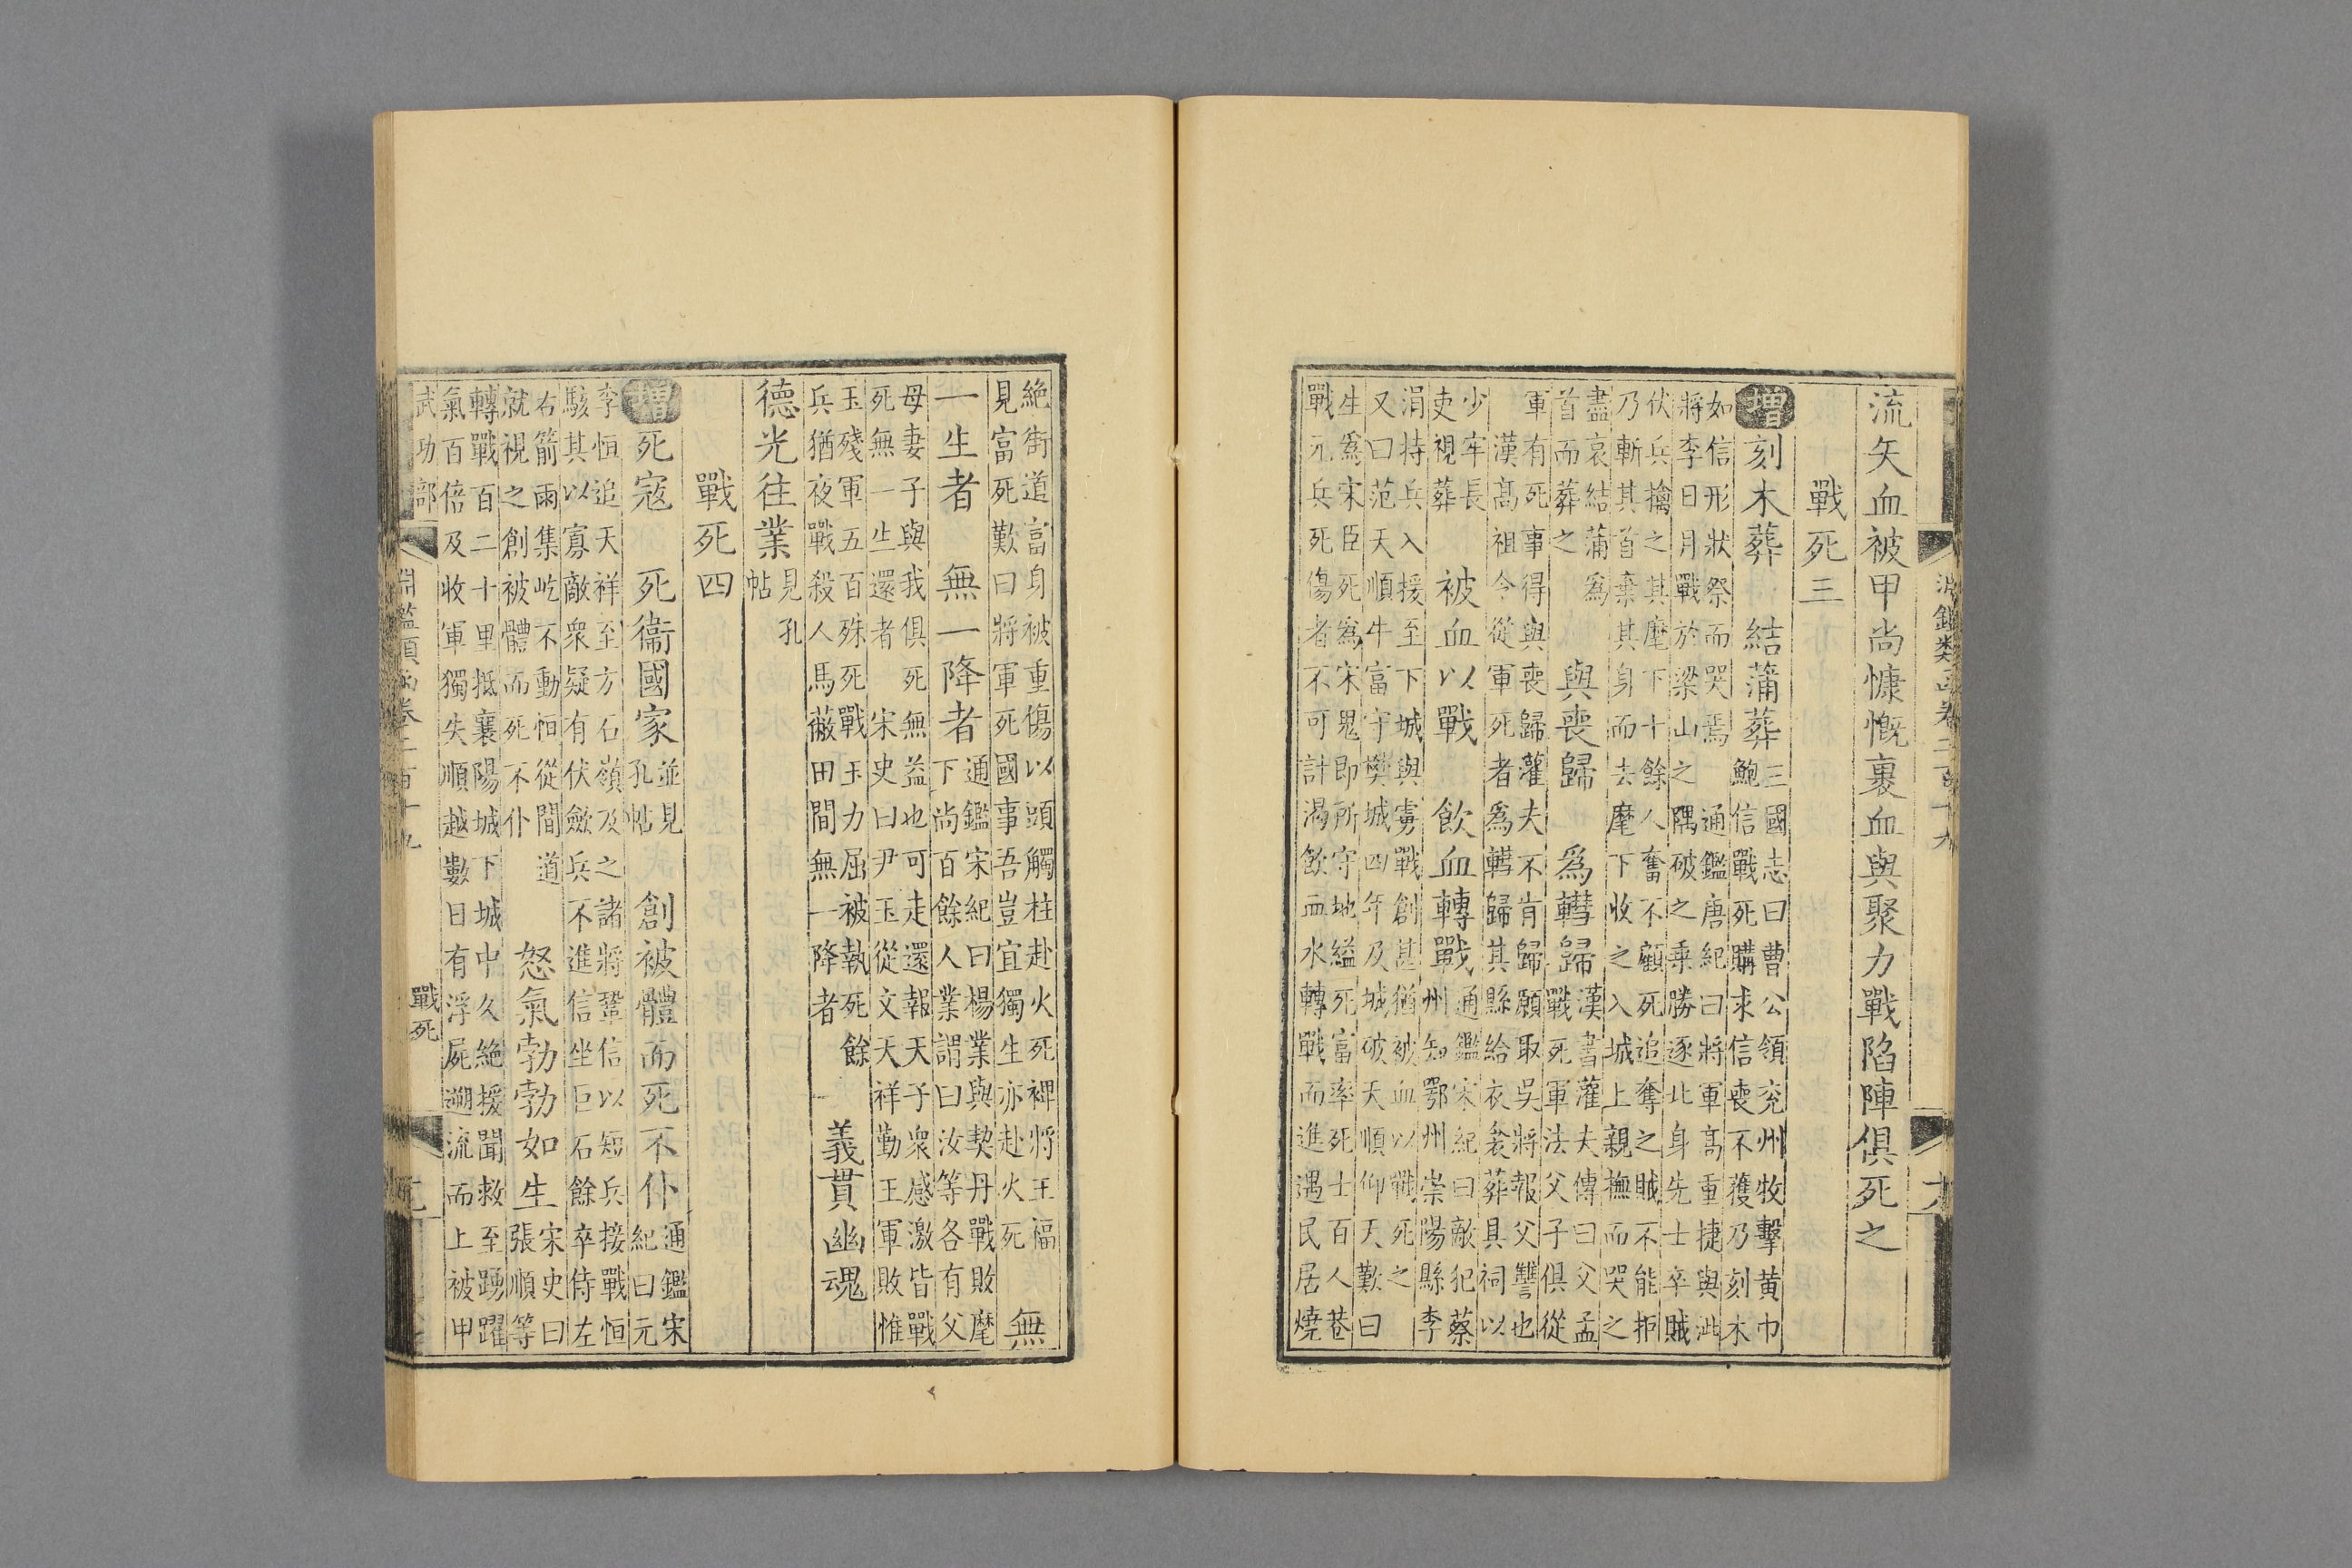 淵鑑類函卷二百十九
流矢血被甲尚慷慨裹血與聚力戰陷陣俱死之
戰死三
增刻木葬 結蒲葬
三國志曰曹公領兗州牧擊黄巾
鮑信戰死購求信喪不獲乃刻木
如信形狀祭而哭焉 通鑑唐紀曰將軍髙重捷與泚
將李日月戰於梁山之隅破之乘勝逐北身先士卒賊
伏兵擒之其麾下十餘人奮不顧死追奪之賊不能拒
乃斬其首棄其身而去麾下收之入城上親撫而哭之
盡哀結蒲爲
首而葬之
與喪歸 爲轊歸
漢書灌夫傳曰父孟
戰死軍法父子俱從
軍有死事得與喪歸灌夫不肯歸願取吳將報父讐也
漢髙祖令從軍死者爲轊歸其縣給衣衾葬具祠以
少牢長
吏視葬
被血以戰 飲血轉戰
通鑑宋紀曰敵犯蔡
州知鄂州崇陽縣李
涓持兵入援至下城與虜戰創甚猶被血以戰死之
又曰范天順牛富守樊城四年及城破天順仰天歎曰
生爲宋臣死爲宋鬼即所守地縊死富率死士百人巷
戰元兵死傷者不可計渴飲血水轉戰而進遇民居燒
絶街道富身被重傷以頭觸柱赴火死裨將王福
見富死歎曰將軍死國事吾豈宜獨生亦赴火死
無
一生者 無一降者
通鑑宋紀曰楊業與契丹戰敗麾
下尚百餘人業謂曰汝等各有父
母妻子與我俱死無益也可走還報天子衆感激皆戰
死無一生還者 宋史曰尹玉從文天祥勤王軍敗惟
玉殘軍五百殊死戰玉力屈被執死餘
兵猶夜戰殺人馬蔽田間無一降者
義貫幽魂
德光往業
見孔
帖
戰死四
增死寇 死衞國家
並見
孔帖
創被體而死不仆
通鑑宋
紀曰元
李恒追天祥至方石嶺及之諸將鞏信以短兵接戰恒
駭其以寡敵衆疑有伏斂兵不進信坐巨石餘卒侍左
右箭雨集屹不動恒從間道
就視之創被體而死不仆
怒氣勃勃如生
宋史曰
張順等
轉戰百二十里抵襄陽城下城中久絶援聞救至踴躍
氣百倍及收軍獨失順越數日有浮屍遡流而上被甲
武功部 淵鑑類函卷二百十九 戰死